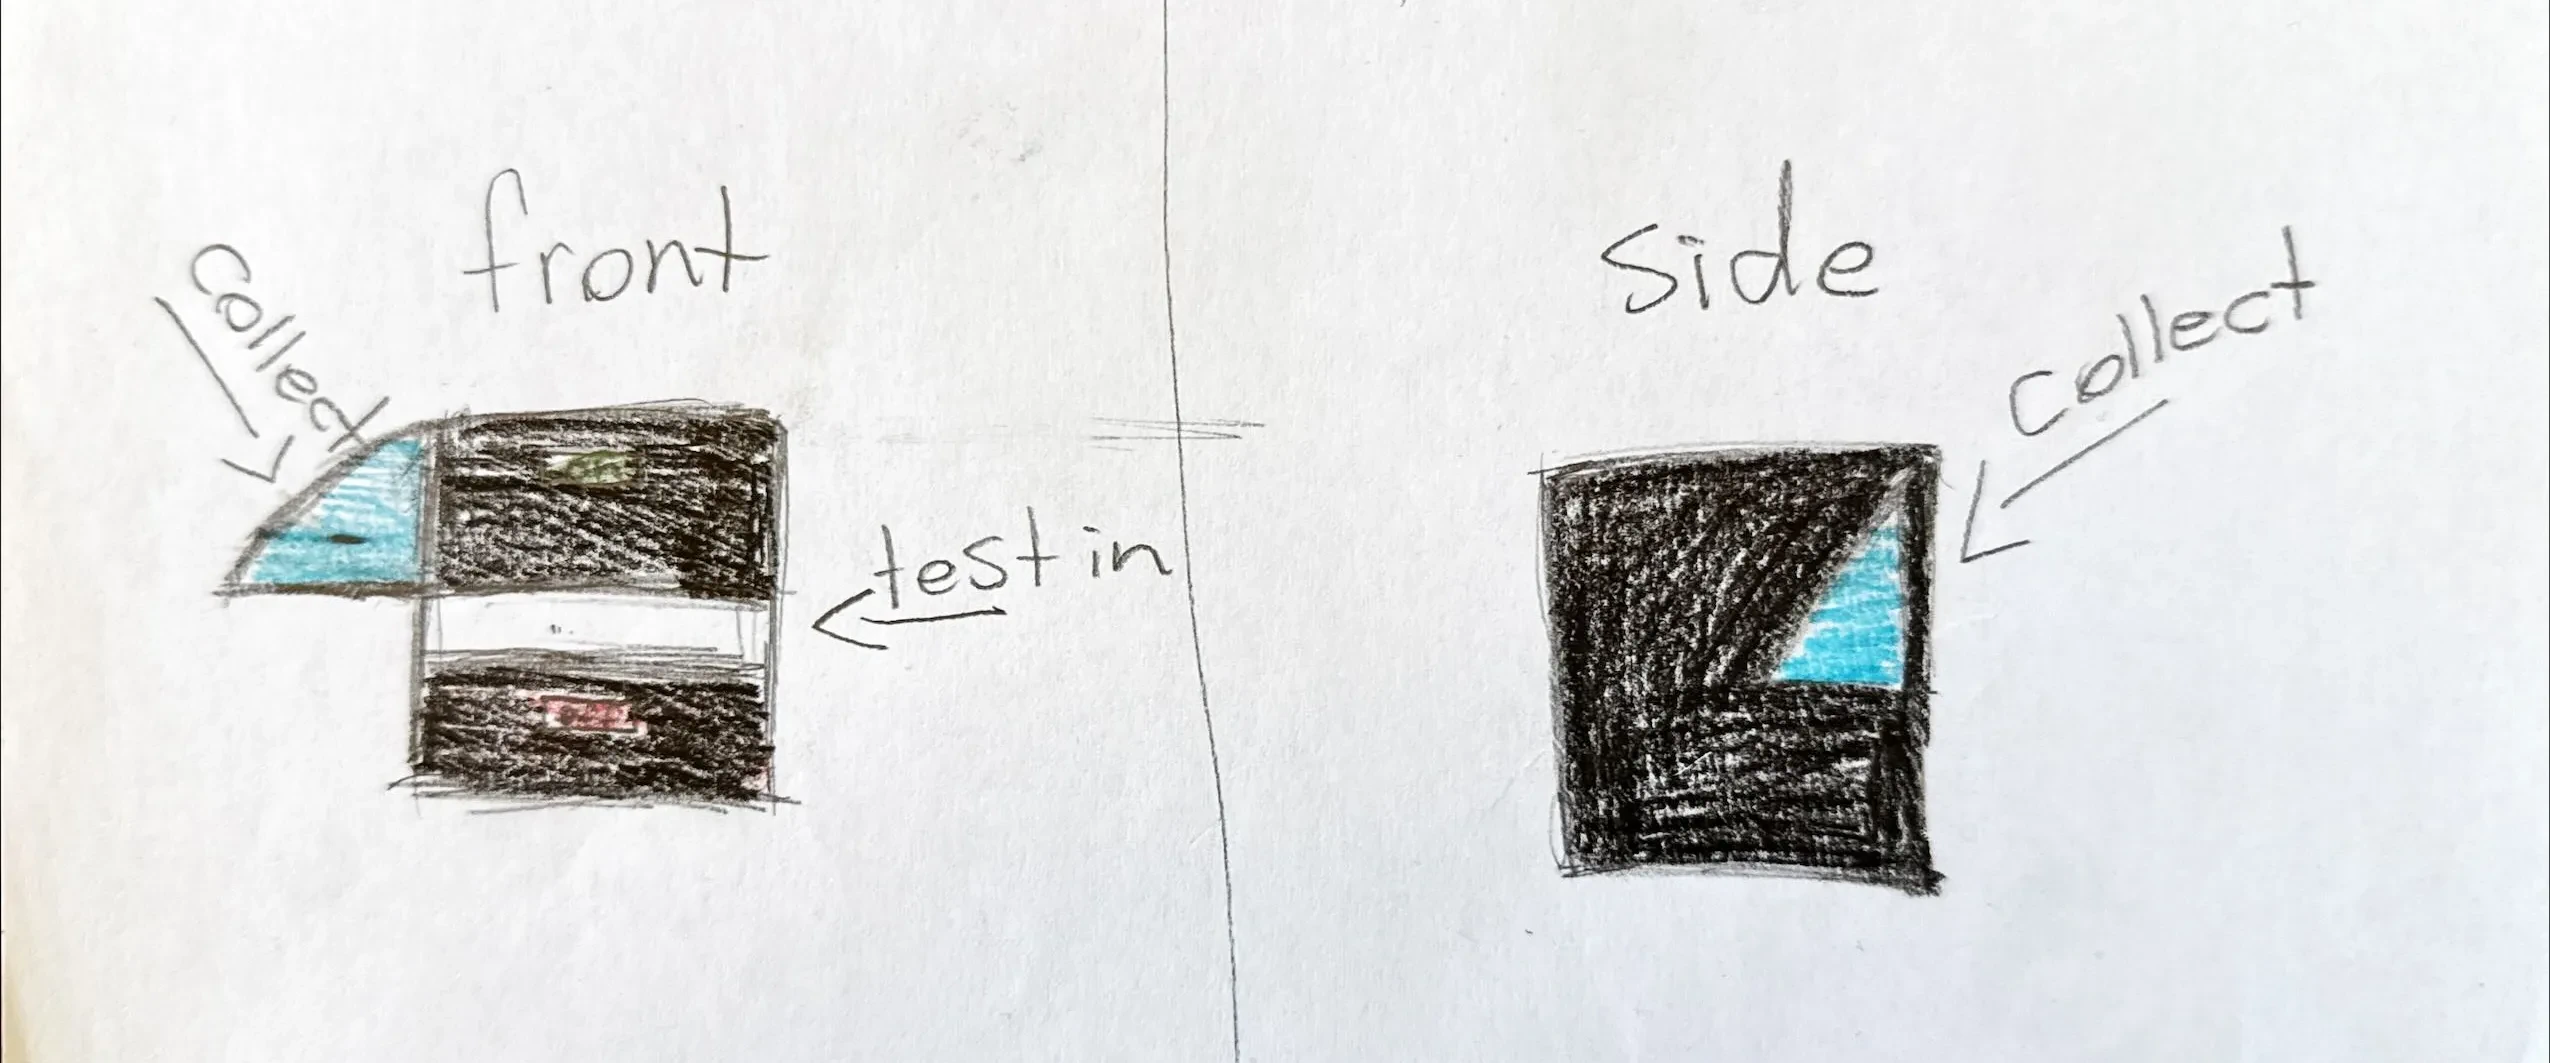 front
collect
test in
side
collect